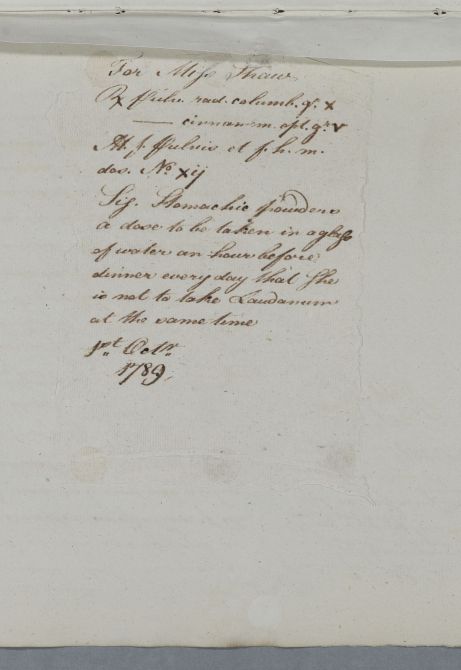 For Miss Shaw
℞ Pulv. rad. columb. gr. x
—— cinnamm. opt. gr. v
M. f. Pulvis et f. h. m.
dos. No. xij
Sig. Stomachic powders
a dose to be taken in a glass
of water an hour before
dinner every day that She
is not to take Laudanum
at the same time
1st Octr.
1789.